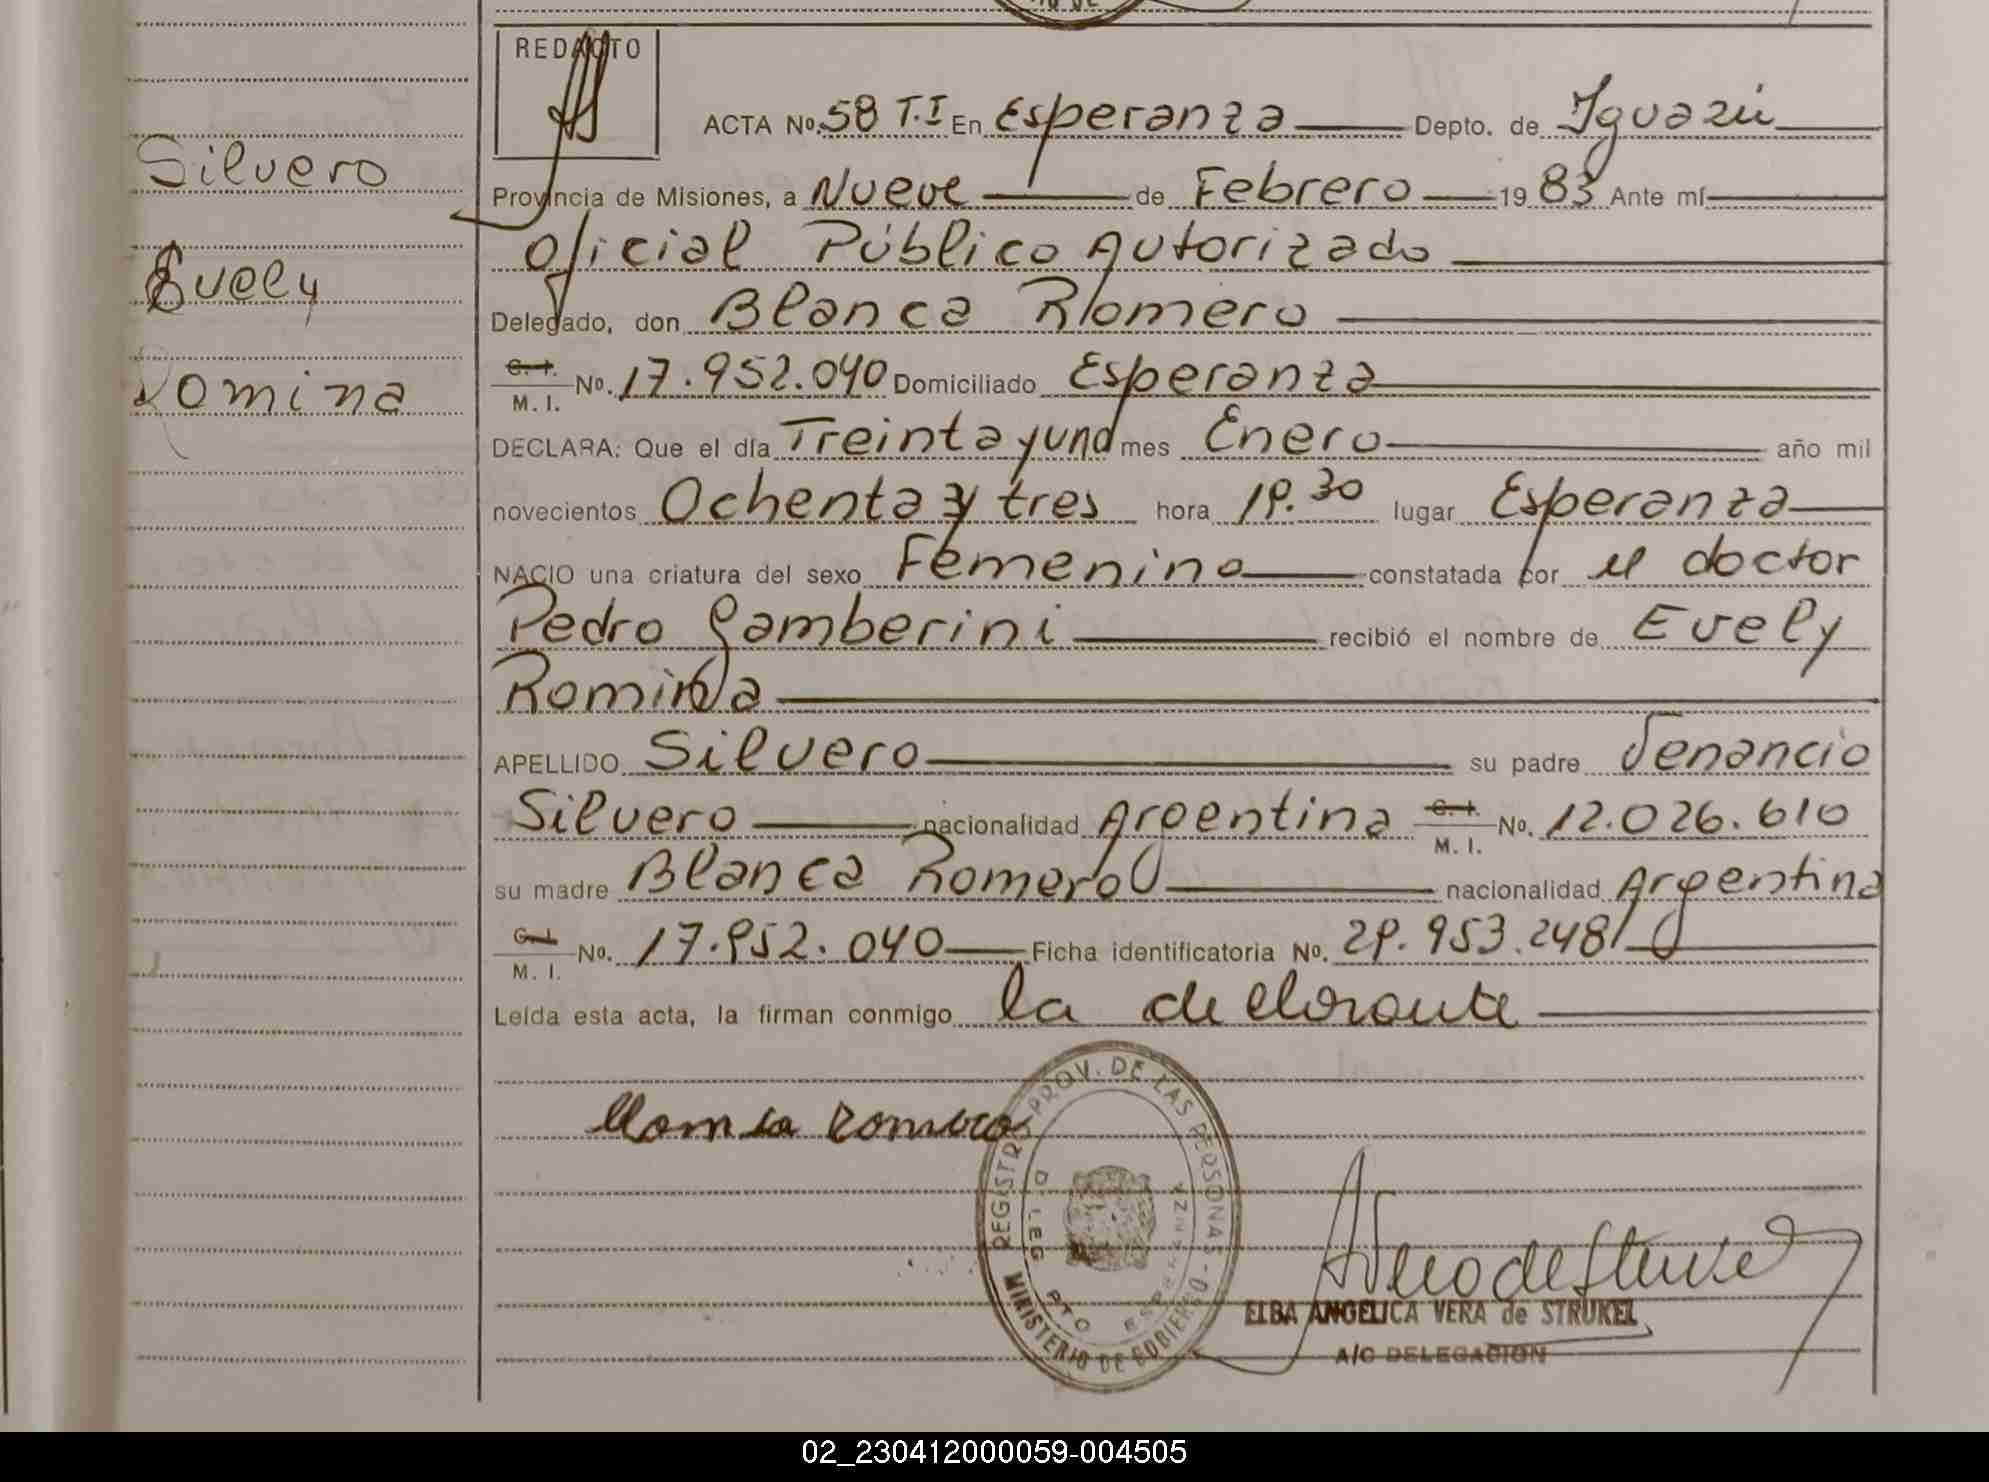 REDACTO
ACTA Nº. 58 T.I En Esperanza Depto. de Iguazú
Silvero
Provincia de Misiones, a Nueve de Febrero 19 83 Ante mí
Oficial Público Autorizado
Evely
Delegado, don Blanca Romero
Romina
C. I. M. I. Nº. 17.952.040 Domiciliado Esperanza
DECLARA: Que el día Treinta y uno mes Enero año mil
novecientos Ochenta y tres hora 19.30 lugar Esperanza
NACIO una criatura del sexo Femenino constatada por el doctor
Pedro Gamberini recibió el nombre de Evely
Romina
APELLIDO Silvero su padre Venancio
Silvero nacionalidad Argentina C. I. M. I. Nº. 12.026.610
su madre Blanca Romero nacionalidad Argentina
C. I. M. I. Nº. 17.952.040 Ficha identificatoria Nº. 29.953.248
Leída esta acta, la firman conmigo la declarante
REGISTRO PROV. DE LAS PERSONAS
MINISTERIO DE GOBIERNO
PTO ESPERANZA
ELBA ANGELICA VERA de STRUKEL
A/C DELEGACION
02_230412000059-004505